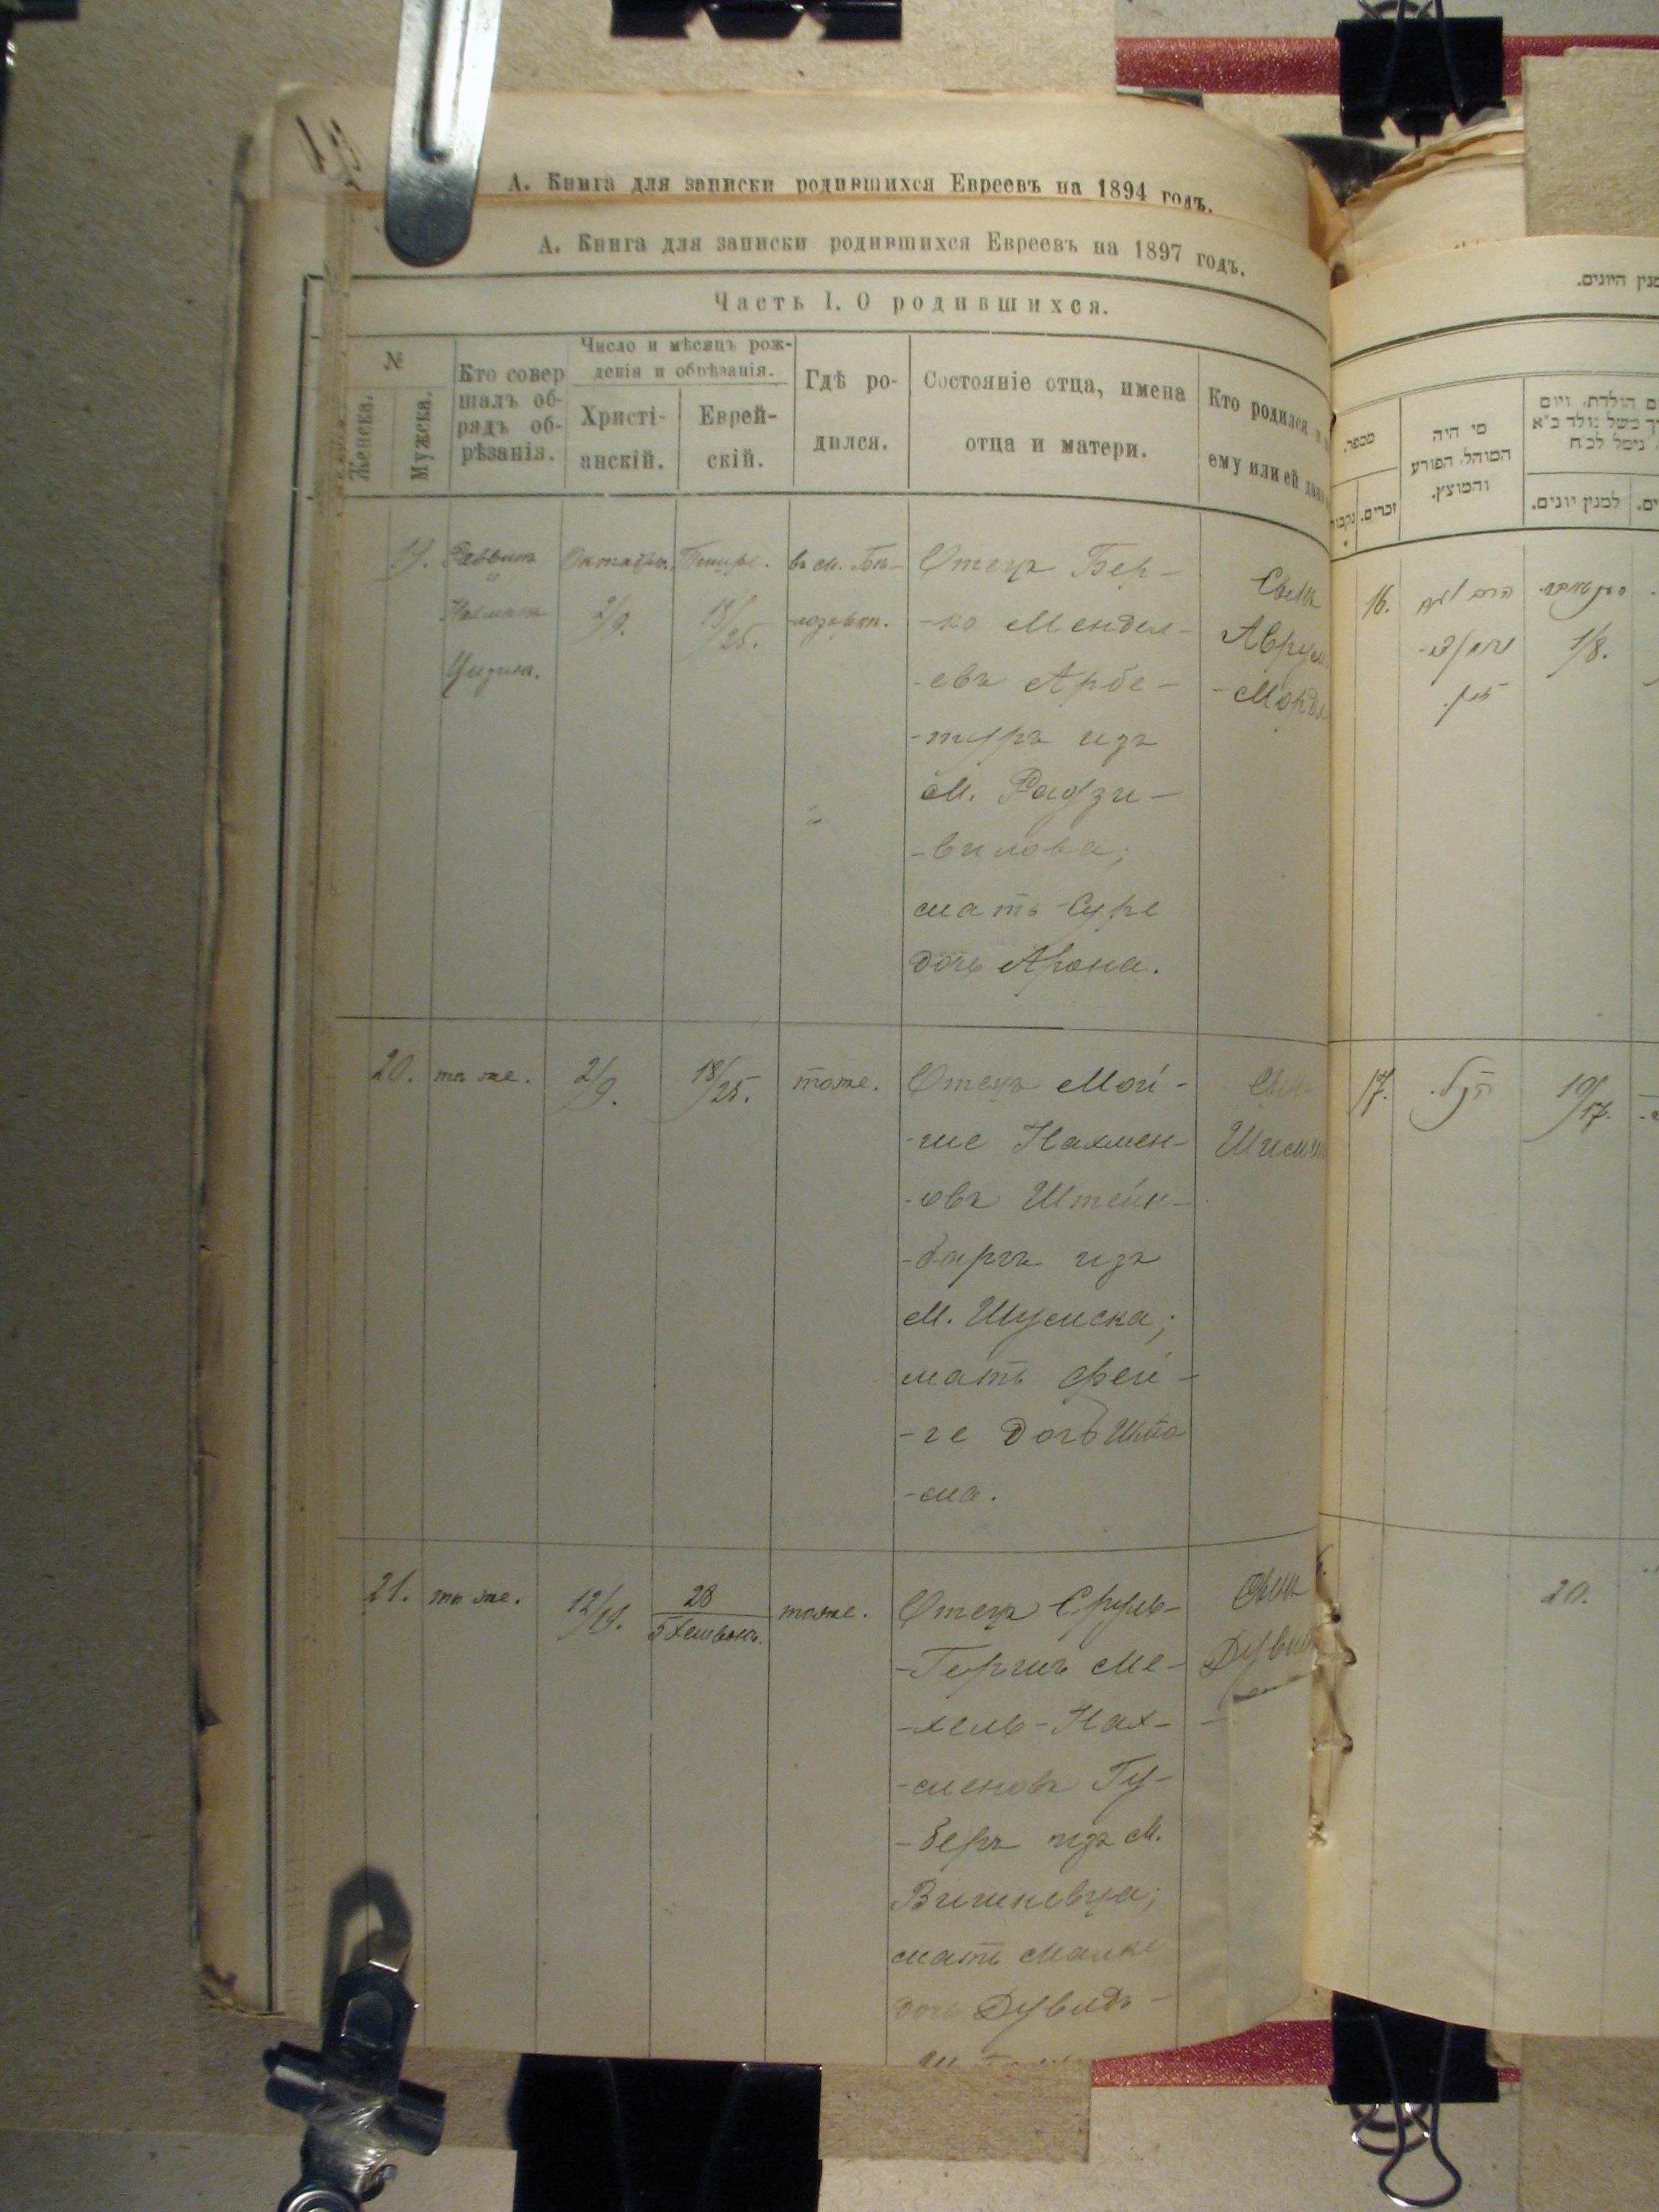 А. Книга для записки родившихся Евреевъ на 1894 годъ.
А. Книга для записки родившихся Евреевъ на 1897 годъ.
Часть I. О родившихся.
№
Женска.
Мужска.
Кто совер
шалъ об-
рядъ об-
рѣзанія.
Число и мѣсяцъ рож-
денія и обрѣзанія.
Христі-
анскій.
Еврей-
скій.
Гдѣ ро-
дился.
Состояніе отца, имена
отца и матери.
Кто родился
ему или ей
19.
Раввинъ
Цизинъ.
Октября.
2/9.
Тишре.
18/25.
въ м. Бѣ-
-лозерк.
Отецъ Бер-
-ко Мендел-
-евъ Арбе-
-туръ изъ
М. Радзи-
-вилова;
мать Суре
дочь Арона.
Сынъ
Аврум
-Мордх
20.
тоже.
2/9.
18/25.
тоже.
Отецъ Мой-
-ше Нахмен-
-овъ Штейн-
-баргъ изъ
М. Шумска;
мать Фей-
-ге дочь
-ма.
Сынъ
21.
тоже.
12/19.
28
5 Хешвонъ.
тоже.
Отецъ Сруль-
-Гершъ Ме-
-хель-Нах-
-меновъ Гу-
-беръ изъ М.
Вишневца;
мать Малке
дочь Дувидъ-
Сынъ
Дувид
מנין היונים.
מספר.
נקבות
זכרים.
מי היה
המוהל, הפורע
והמוצץ.
הולדת, ויום
למנין יונים.
16.
1/8.
17.
10/17.
20.